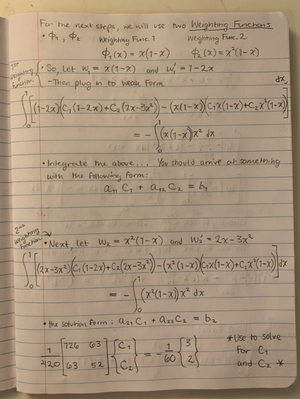 For the next steps, we will use two Weighting Functions
• Φ₁, Φ₂ Weighting Func. 1 Weighting Func. 2
Φ₁(x) = x(1-x) Φ₂(x) = x²(1-x)
1st Weighting Function
• So, let W₁ = x(1-x) and W₁' = 1-2x
- Then plug in to Weak Form
∫₀¹ [(1-2x)(C₁(1-2x)+C₂(2x-3x²)) - (x(1-x))(C₁x(1-x)+C₂x²(1-x))] dx
= - ∫₀¹ (x(1-x))x² dx
• Integrate the above... You should arrive at something
with the following form:
a₁₁ C₁ + a₁₂ C₂ = b₁
2nd Weighting function
• Next, let W₂ = x²(1-x) and W₂' = 2x-3x²
∫₀¹ [(2x-3x²)(C₁(1-2x)+C₂(2x-3x²)) - (x²(1-x))(C₁x(1-x)+C₂x²(1-x))] dx
= - ∫₀¹ (x²(1-x))x² dx
• the solution form: a₂₁ C₁ + a₂₂ C₂ = b₂
1/420 [126 63; 63 52] {C₁; C₂} = -1/60 {3; 2}
*Use to solve
for C₁
and C₂ *